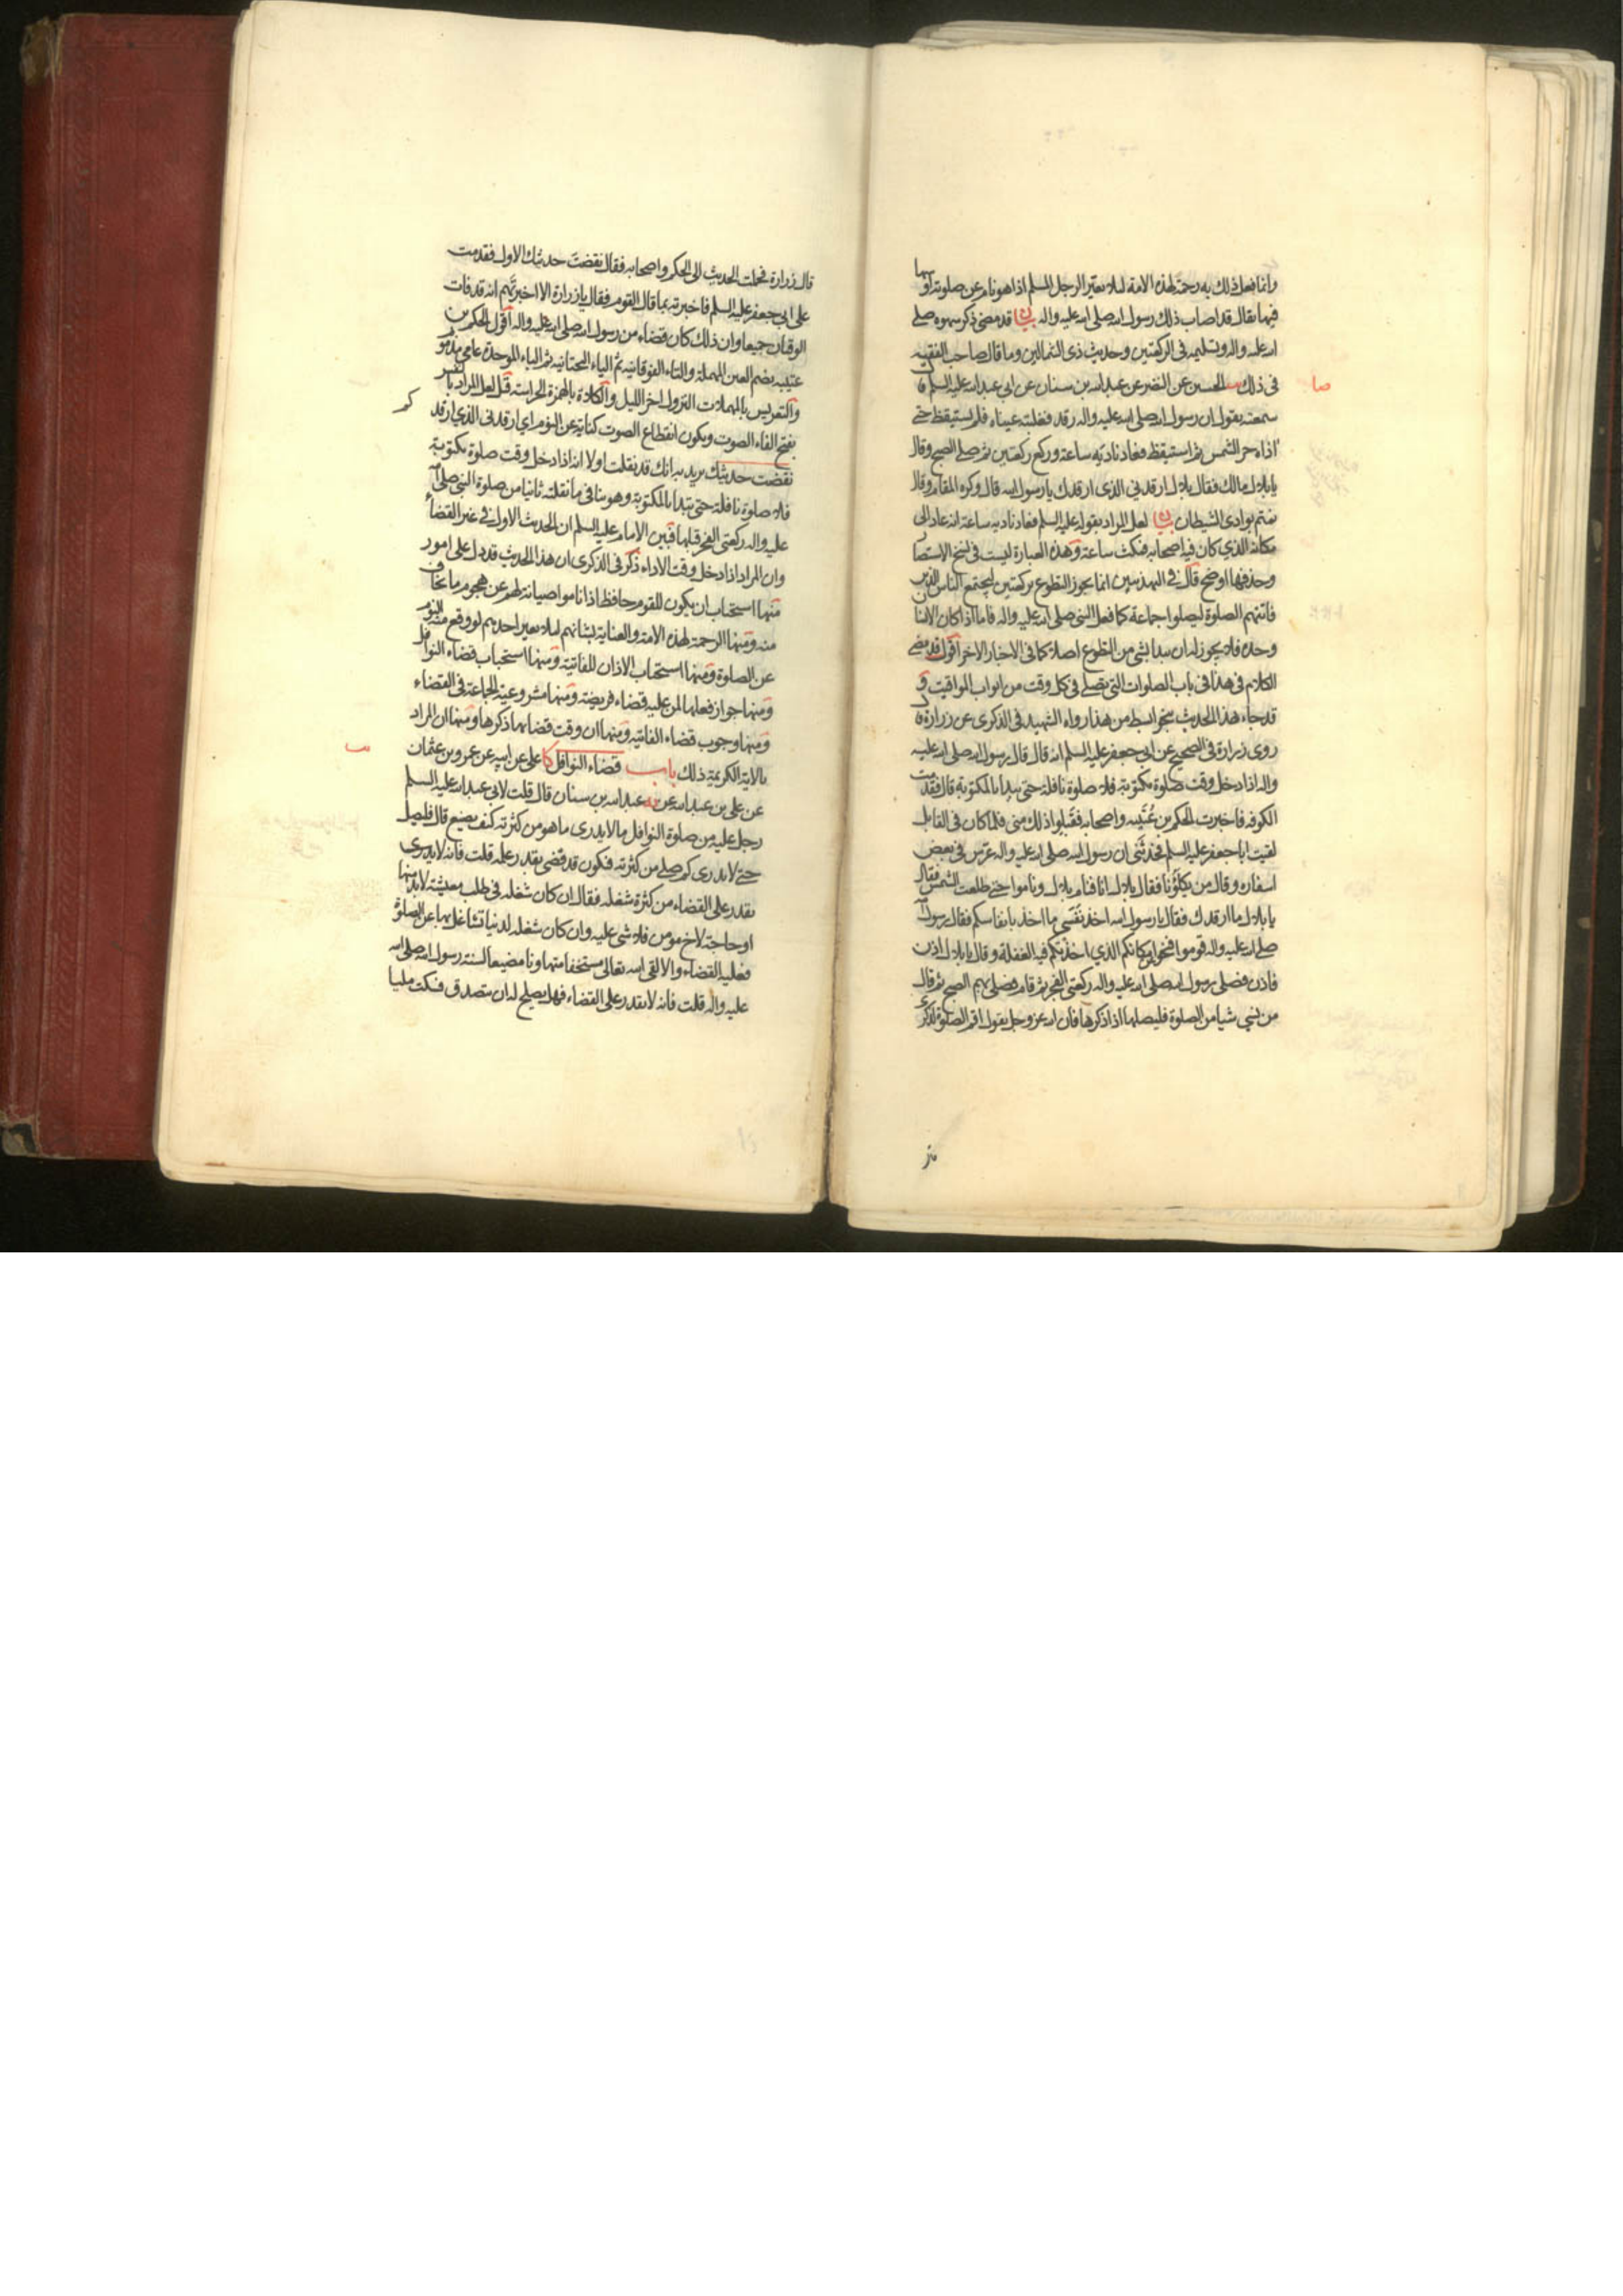 وانما فعل ذلك به رحمة لهذه الامة لئلا يعير الرجل المسلم اذا هو نام عن صلوته او سها
فيها يقال قد اصاب ذلك رسول الله صلى الله عليه واله بيان قد مضى ذكر سهوه صلى
الله عليه واله وتسليمه فى الركعتين وحديث ذى الشمالين وما قال صاحب الفقيه
صا
فى ذلك الحسين عن النضر عن عبدالله بن سنان عن ابي عبدالله عليه السلم قال
سمعته يقول ان رسول الله صلى الله عليه واله رقد فغلبته عيناه فلم يستيقظ حتى
اذاه حر الشمس ثم استيقظ فعاد ناديه ساعة وركع ركعتين ثم صلى الصبح وقال
يا بلال مالك فقال بلال ارقدني الذى ارقدك يا رسول الله قال وكره المقام وقال
نمتم بوادى الشيطان بيان لعل المراد بقوله عليه السلم فعاد ناديه ساعة انه عاد الى
مكانه الذي كان فيه اصحابه فمكث ساعة وهذه العبارة ليست فى نسخ الاستبصار
وحذفها اوضح قال فى التهذيبين انما يجوز التطوع بركعتين ليجتمع الناس الذين
فاتتهم الصلوة ليصلوا جماعة كما فعل النبى صلى الله عليه واله فاما اذا كان الانسان
وحده فلا يجوز له ان يبدا بشئ من التطوع اصلا كما فى الاخبار الاخر اقول قد مضى
الكلام فى هذا فى باب الصلوات التى تصلى فى كل وقت من ابواب المواقيت و
قد جاء هذا الحديث بنحو ابسط من هذا رواه الشهيد فى الذكرى عن زرارة قال
روى زرارة فى الصحيح عن ابي جعفر عليه السلم انه قال قال رسول الله صلى الله عليه
واله اذا دخل وقت صلوة مكتوبة فلا صلوة نافلة حتى يبدا بالمكتوبة قال فقدمت
الكوفه فاخبرت الحكم بن عُتَيبه واصحابه فقبلوا ذلك منى فلما كان فى القابل
لقيت ابا جعفر عليه السلم فحدثنى ان رسول الله صلى الله عليه واله عرس فى بعض
اسفاره وقال من يكلؤنا فقال بلال انا فنام بلال وناموا حتى طلعت الشمس فقال
يا بلال ما ارقدك فقال يا رسول الله اخذ بنَفَسي ما اخذ بانفاسكم فقال رسول الله
صلى الله عليه واله قوموا فتحولوا عن مكانكم الذي اخذتكم فيه الغفلة وقال يا بلال اذن
فاذن فصلى رسول الله صلى الله عليه واله ركعتى الفجر ثم قام فصلى بهم الصبح ثم قال
من نسي شيا من الصلوة فليصلها اذا ذكرها فان الله عز وجل يقول اقم الصلوة لذكرى
قال زرارة فحملت الحديث الى الحكم واصحابه فقال نقضتَ حديثك الاول فقدمت
على ابي جعفر عليه السلم فاخبرته بما قال القوم فقال يا زرارة الا اخبرتَهم انه قد فات
الوقتان جميعا وان ذلك كان قضاء من رسول الله صلى الله عليه واله اقول الحكم بن
عتيبه بضم العين المهملة والتاء الفوقانية ثم الياء التحتانية ثم الباء الموحدة عامى مذموم
والتعريس بالمهملات النزول اخر الليل والكلاءة بالهمزة الحراسة قيل لعل المراد بالنفس
بفتح الفاء الصوت ويكون انقطاع الصوت كناية عن النوم اي ارقدنى الذي ارقدك
نقضت حديثك يريد به انك قد نقلت اولا انه اذا دخل وقت صلوة مكتوبة
فلا صلوة نافلة حتى يبدا بالمكتوبة وهو ينافى ما نقلته ثانيا من صلوة النبي صلى الله
عليه واله ركعتى الفجر قبلها فبين الامام عليه السلم ان الحديث الاول فى غير القضاء
وان المراد اذا دخل وقت الاداء ذكر فى الذكرى ان هذا الحديث قد دل على امور
منها استحباب ان يكون للقوم حافظ اذا ناموا صيانة لهم عن هجوم ما يخاف
منه ومنها الرحمة لهذه الامة والعناية بشانهم لئلا يعير احدهم لو وقع منه النوم
عن الصلوة ومنها استحباب الاذان للفائتة ومنها استحباب قضاء النوافل
ومنها جواز فعلها لمن عليه قضاء فريضة ومنها مشروعية الجماعة فى القضاء
ومنها وجوب قضاء الفائتيه ومنها ان وقت قضائها ذكرها ومنها ان المراد
بالاية الكريمة ذلك باب قضاء النوافل كا على عن ابيه عن عمرو بن عثمان
عن على بن عبدالله عن عبدالله بن سنان قال قلت لابى عبدالله عليه السلم
رجل عليه من صلوة النوافل ما لا يدرى ما هو من كثرته كيف يصنع قال فليصل
حتى لا يدرى كم صلى من كثرته فيكون قد قضى بقدر علمه قلت فانه لا يدرى
يقدر على القضاء من كثرة شغله فقال ان كان شغله فى طلب معيشة لابد منها
او حاجة لاخ مومن فلا شى عليه وان كان شغله لدنيا تشاغل بها عن الصلوة
فعليه القضاء والا لقى الله تعالى مستخفا متهاونا مضيعا لسنة رسول الله صلى الله
عليه واله قلت فانه لا يقدر على القضاء فهل يصلح له ان يتصدق فسكت مليا